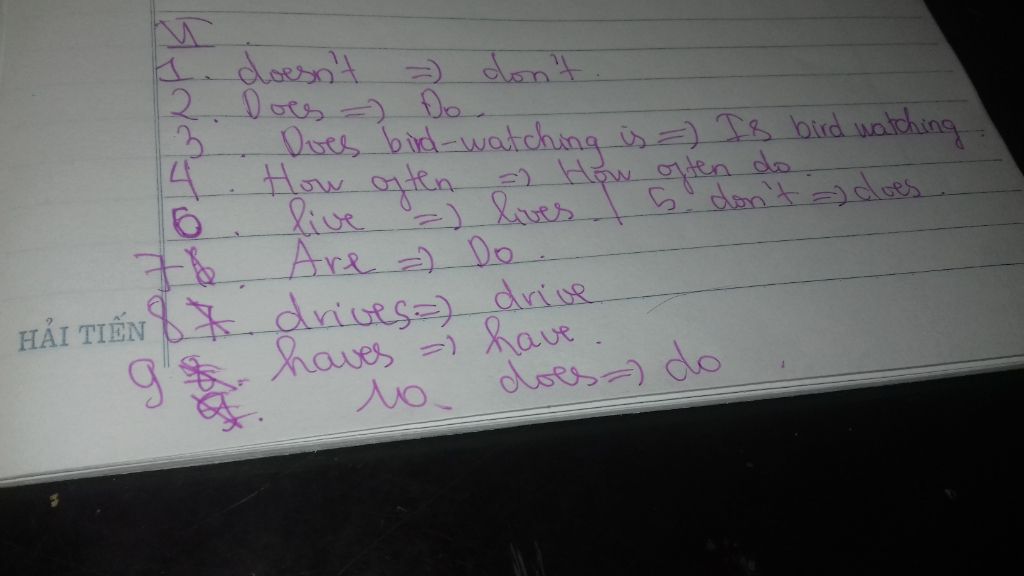 VI.
1. doesn't => don't.
2. Does => Do.
3. Does bird-watching is => Is bird watching.
4. How often => How often do.
6. live => lives. | 5. don't => does.
7. Are => Do.
8. drives => drive
HẢI TIẾN
9. haves => have.
10. does => do.